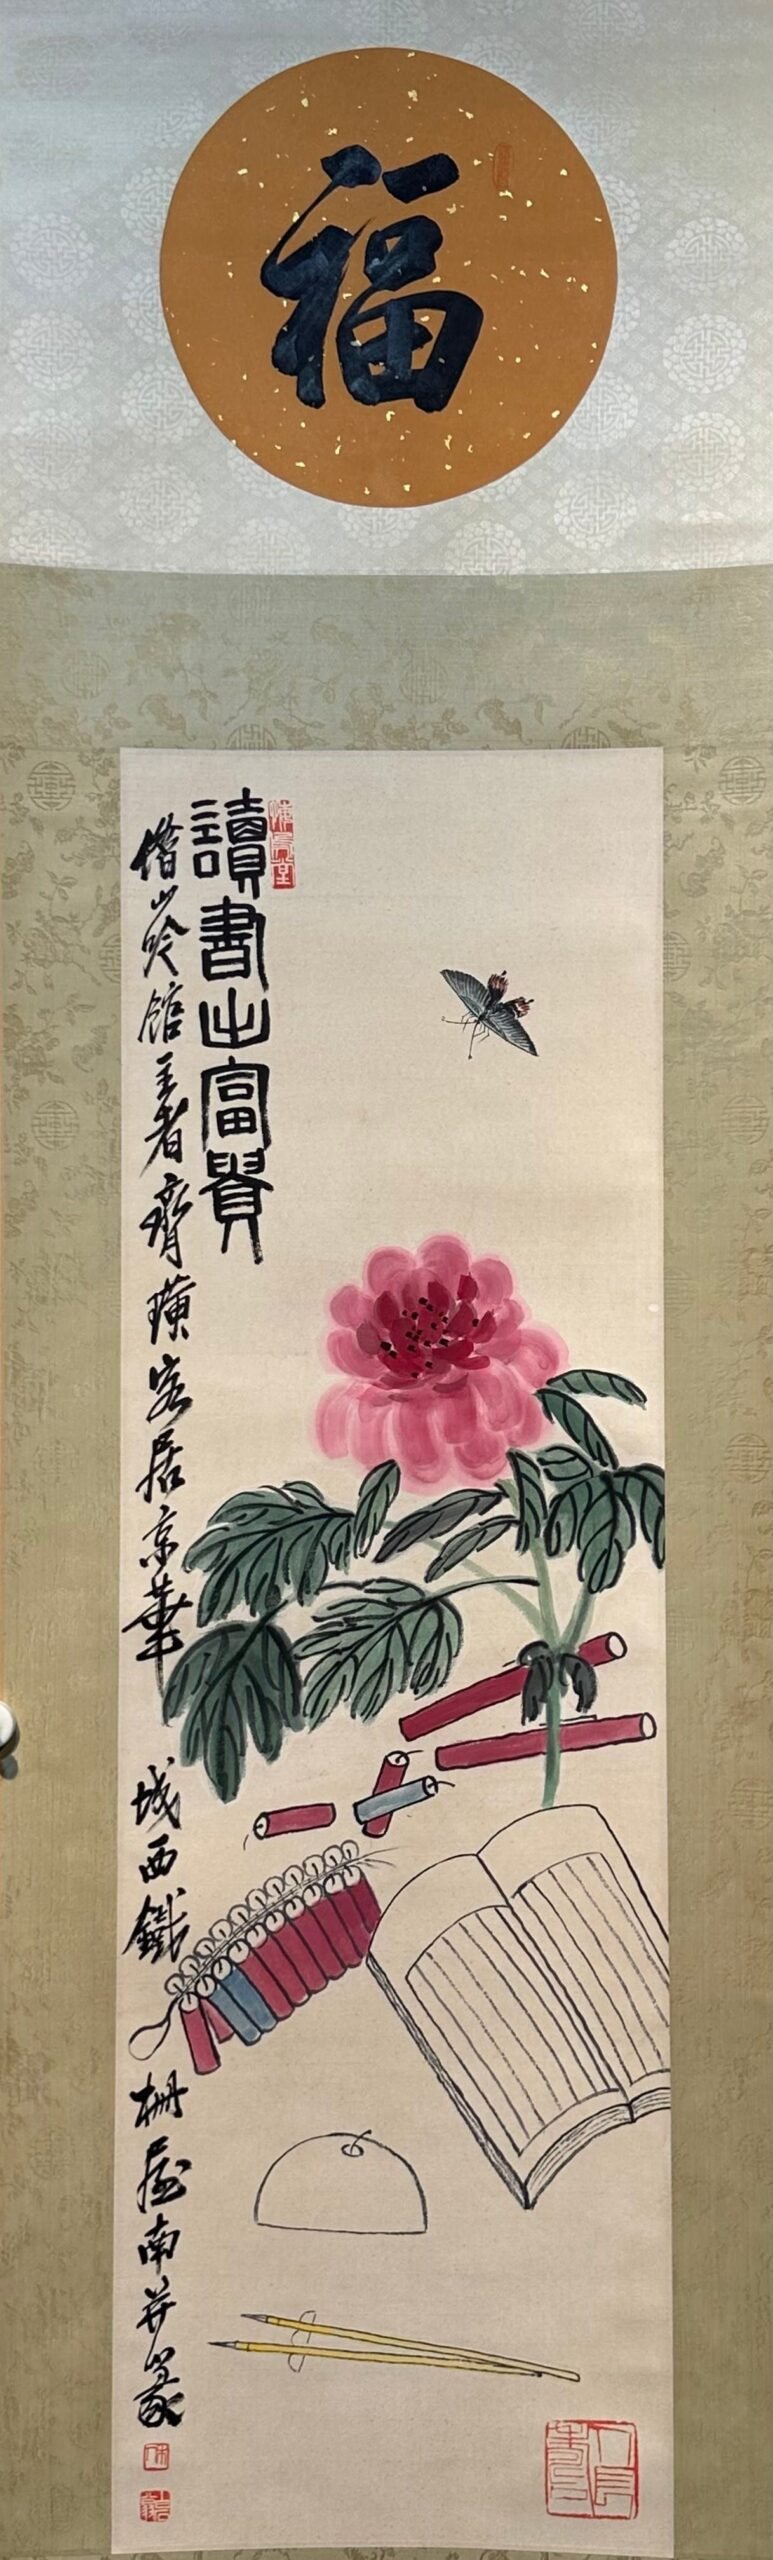 福
讀書之富貴
借山吟館主者齊璜客居京華城西鐵柵屋南並篆